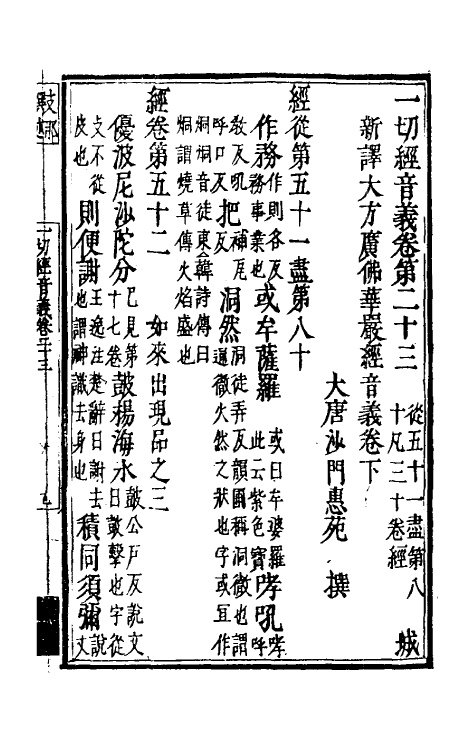 一切經音義卷第二十三 從五十一盡第八十凡三十卷經 城
新譯大方廣佛華嚴經音義卷下
大唐沙門惠苑 撰
經從第五十一盡第八十
作務 作則各反務事業也 或牟薩羅 或曰牟婆羅此云紫色寶 哮吼 哮呼
教反吼呼口反 把 補瓦反 洞然 洞徒弄反韻圃稱洞徹也謂逼徹火然之狀也字或宜作
烔烔音徒東韓詩傳曰烔謂燒草傳火焰盛也
經卷第五十二 如來出現品之三
優波尼沙陀分 已見第十七卷 鼓楊海水 鼓公戶反說文曰鼓擊也字從
攴不從皮也 則便謝也 王逸注楚辭曰謝去也謂神識去身也 積同須彌 說文
一切經音義卷二十三